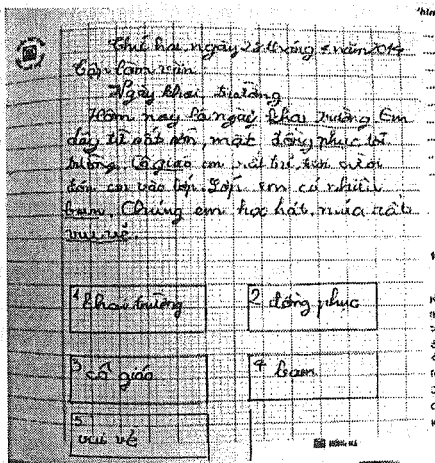 Thứ hai ngày 22 tháng 9 năm 2014
Tập làm văn
Ngày khai trường
Hôm nay là ngày khai trường. Em
dậy từ rất sớm, mặc đồng phục tới
trường. Cô giáo em rất trẻ, tươi cười
đón em vào lớp. Lớp em có nhiều
bạn. Chúng em học hát, múa rất
vui vẻ.
1 khai trường
2 đồng phục
3 cô giáo
4 bạn
5 vui vẻ